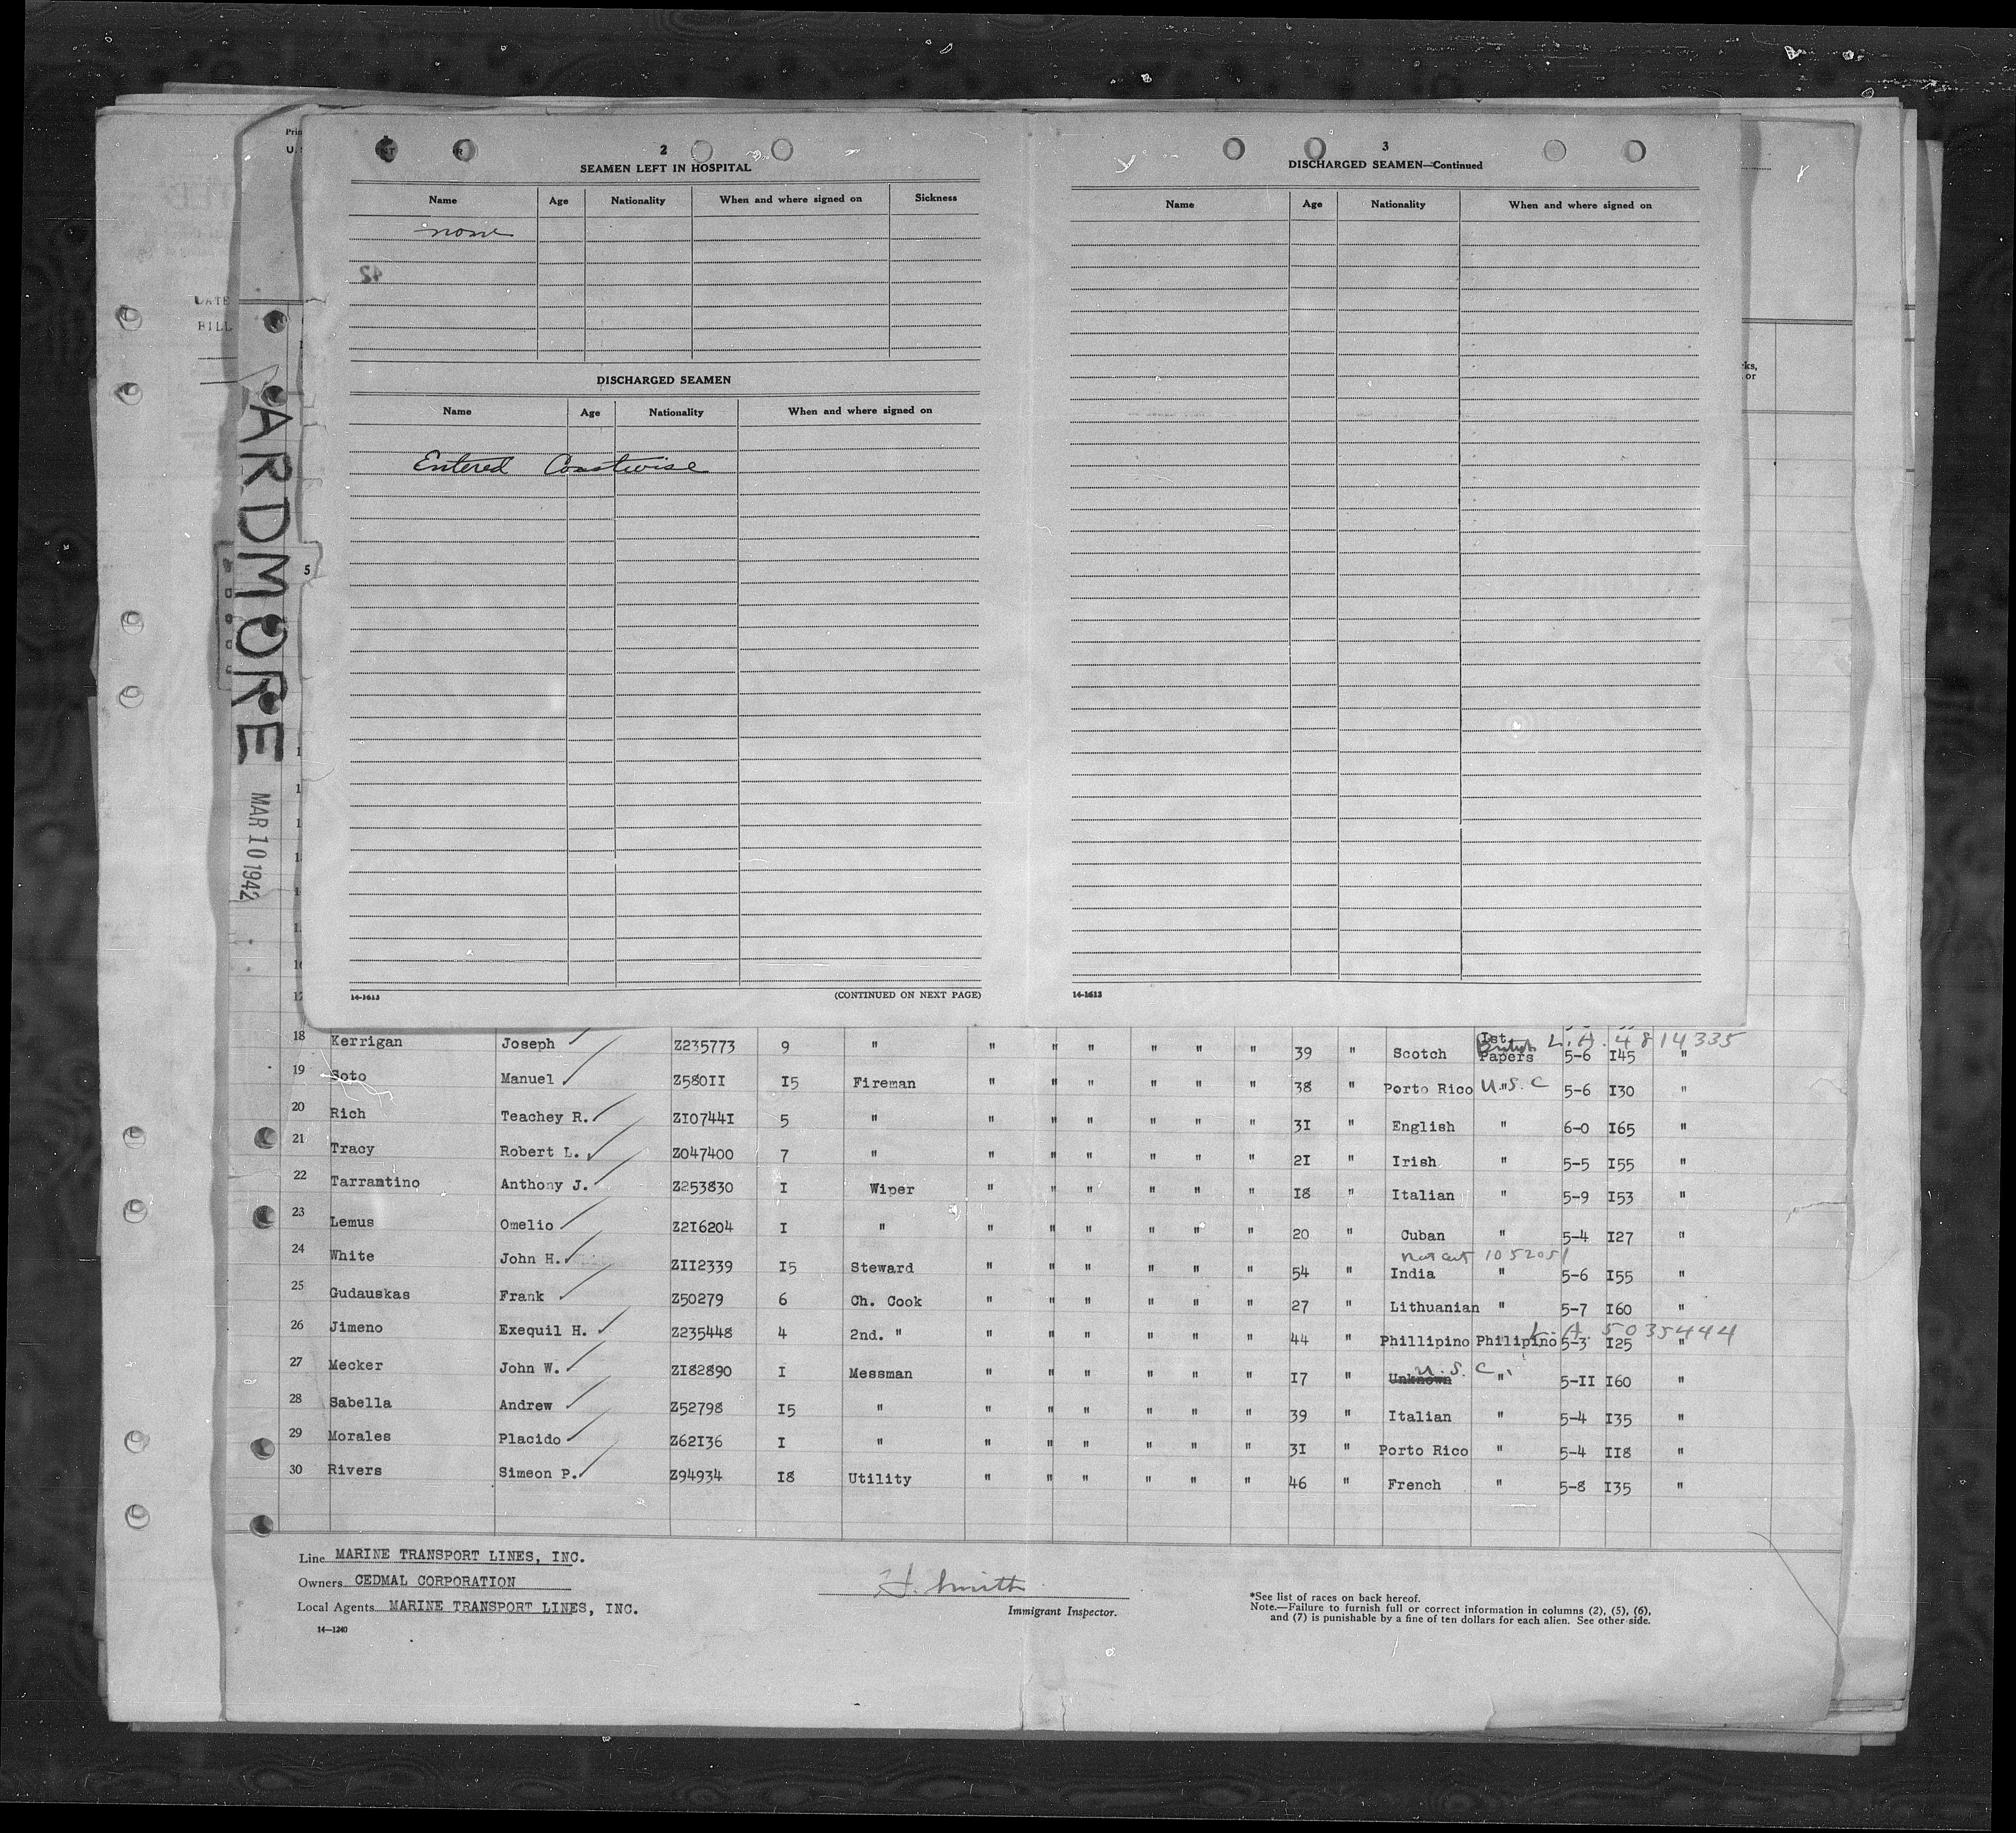 Prin
U.
DATE
BILL
ARDMORE
MAR 10 1942
5
2
SEAMEN LEFT IN HOSPITAL
Name Age Nationality When and where signed on Sickness
none
42
DISCHARGED SEAMEN
Name Age Nationality When and where signed on
Entered Coastwise
14-1613 (CONTINUED ON NEXT PAGE)
3
DISCHARGED SEAMEN—Continued
Name Age Nationality When and where signed on
14-1613
ks,
or
16
17
18 Kerrigan Joseph Z235773 9 " " " " " " " 39 " Scotch 1st British Papers L.A. 4814335 5-6 I45 "
19 Soto Manuel Z580II I5 Fireman " " " " " " 38 " Porto Rico U.S.C " 5-6 I30 "
20 Rich Teachey R. ZI0744I 5 " " " " " " " 3I " English " 6-0 I65 "
21 Tracy Robert L. Z047400 7 " " " " " " " 2I " Irish " 5-5 I55 "
22 Tarrantino Anthony J. Z253830 I Wiper " " " " " " I8 " Italian " 5-9 I53 "
23 Lemus Omelio Z2I6204 I " " " " " " " 20 " Cuban " 5-4 I27 "
Nat cert 1052051
24 White John H. ZII2339 I5 Steward " " " " " " 54 " India " 5-6 I55 "
25 Gudauskas Frank Z50279 6 Ch. Cook " " " " " " 27 " Lithuanian " 5-7 I60 "
L.A. 5035444
26 Jimeno Exequil H. Z235448 4 2nd. " " " " " " " 44 " Phillipino Philipino 5-3 I25 "
U.S.C.
27 Mecker John W. ZI82890 I Messman " " " " " " I7 " Unknown " 5-II I60 "
28 Sabella Andrew Z52798 I5 " " " " " " " 39 " Italian " 5-4 I35 "
29 Morales Placido Z62I36 I " " " " " " " 3I " Porto Rico " 5-4 II8 "
30 Rivers Simeon P. Z94934 I8 Utility " " " " " " 46 " French " 5-8 I35 "
Line MARINE TRANSPORT LINES, INC.
Owners CEDMAL CORPORATION
Local Agents MARINE TRANSPORT LINES, INC.
14—1240
H. Smith
Immigrant Inspector.
*See list of races on back hereof.
Note.—Failure to furnish full or correct information in columns (2), (5), (6),
and (7) is punishable by a fine of ten dollars for each alien. See other side.